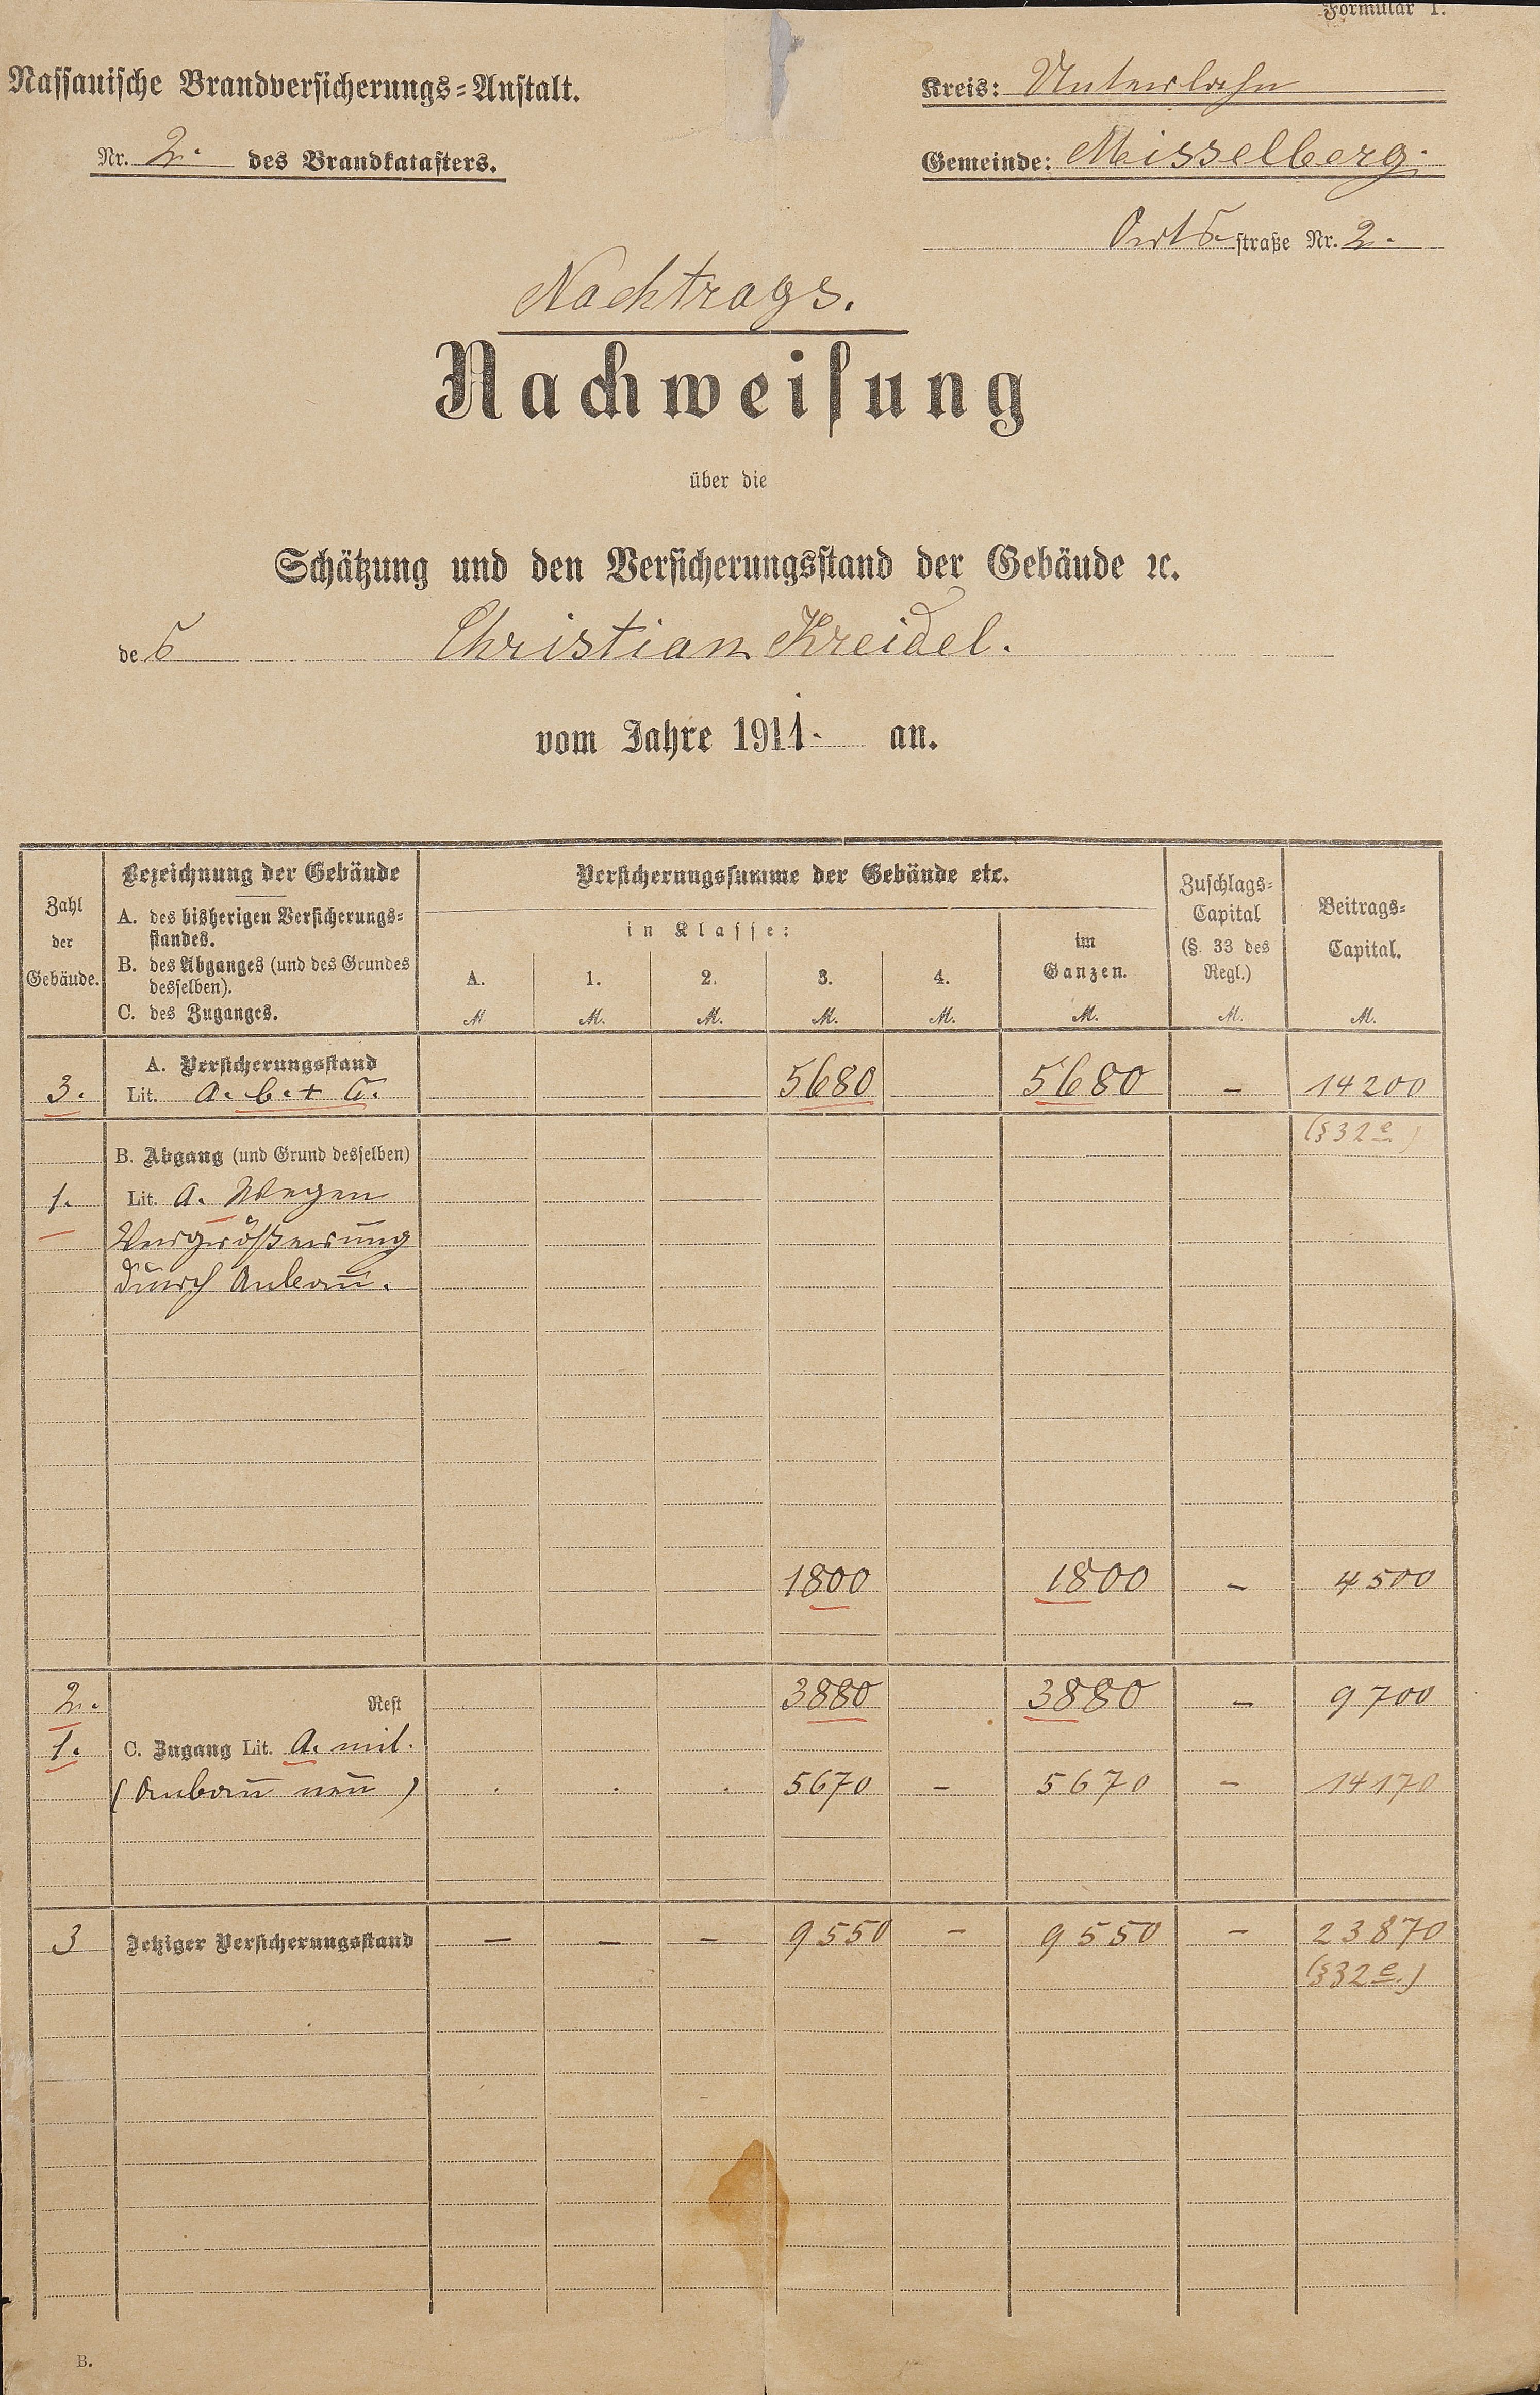 Formular 1.
Nassauische Brandversicherungs-Anstalt.
Kreis: Unterlahn
Nr. 2. des Brandkatasters.
Gemeinde: Misselberg.
Orts straße Nr. 2.
Nachtrags.
Nachweisung
über die
Schätzung und den Versicherungsstand der Gebäude ꝛc.
des Christian Kreidel.
vom Jahre 1911. an.
Zahl der Gebäude.
Bezeichnung der Gebäude
A. des bisherigen Versicherungs-
standes.
B. des Abganges (und des Grundes
desselben).
C. des Zuganges.
Versicherungssumme der Gebäude etc.
in Klasse:
A. 1. 2. 3. 4.
M M. M. M. M.
im
Ganzen.
M.
Zuschlags-
Capital
(§. 33 des
Regl.)
M.
Beitrags-
Capital.
M.
A. Versicherungsstand
3. Lit. a. b. + c. 5680 5680 – 14200
(§ 32 e.)
B. Abgang (und Grund desselben)
1. Lit. a. Wegen
Vergrößerung
durch Anbau.
1800 1800 – 4500
2. Rest 3880 3880 – 9700
1. C. Zugang Lit. a. mit.
(Anbau neu) . . . 5670 – 5670 – 14170
3 Jetziger Versicherungsstand – – – 9550 – 9550 – 23870
(§ 32 e.)
B.